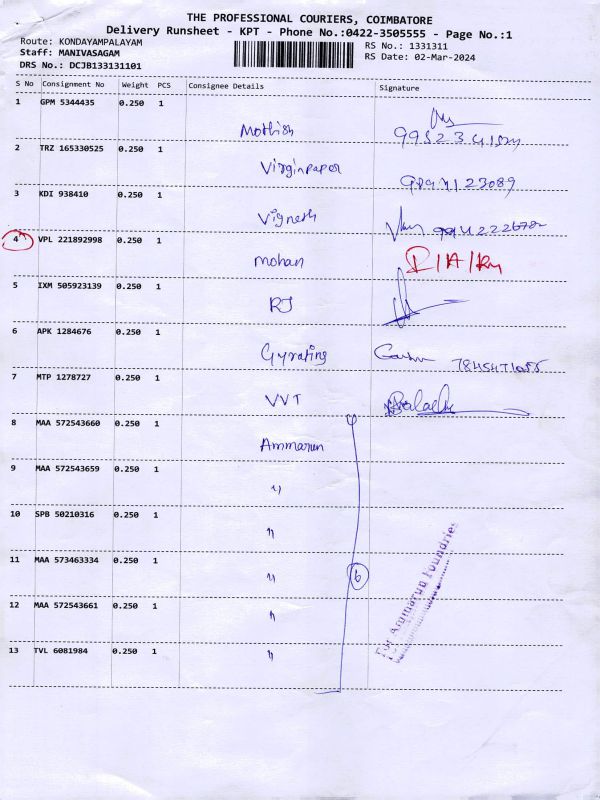 THE PROFESSIONAL COURIERS, COIMBATORE
Delivery Runsheet - KPT - Phone No.:0422-3505555 - Page No.:1
Route: KONDAYAMPALAYAM
RS No.: 1331311
Staff: MANIVASAGAM
RS Date: 02-Mar-2024
DRS No.: DCJB133131101
S No Consignment No Weight PCS Consignee Details Signature
1 GPM 5344435 0.250 1
Mothish
2 TRZ 165330525 0.250 1
Virginpaper
3 KDI 938410 0.250 1
Vignesh
4 VPL 221892998 0.250 1
Mohan
5 IXM 505923139 0.250 1
RJ
6 APK 1284676 0.250 1
Gyrating
7 MTP 1278727 0.250 1
VVT
8 MAA 572543660 0.250 1
Ammarun
9 MAA 572543659 0.250 1
"
10 SPB 50210316 0.250 1
"
11 MAA 573463334 0.250 1
" 6
12 MAA 572543661 0.250 1
"
13 TVL 6081984 0.250 1
"
For Ammarun Foundries